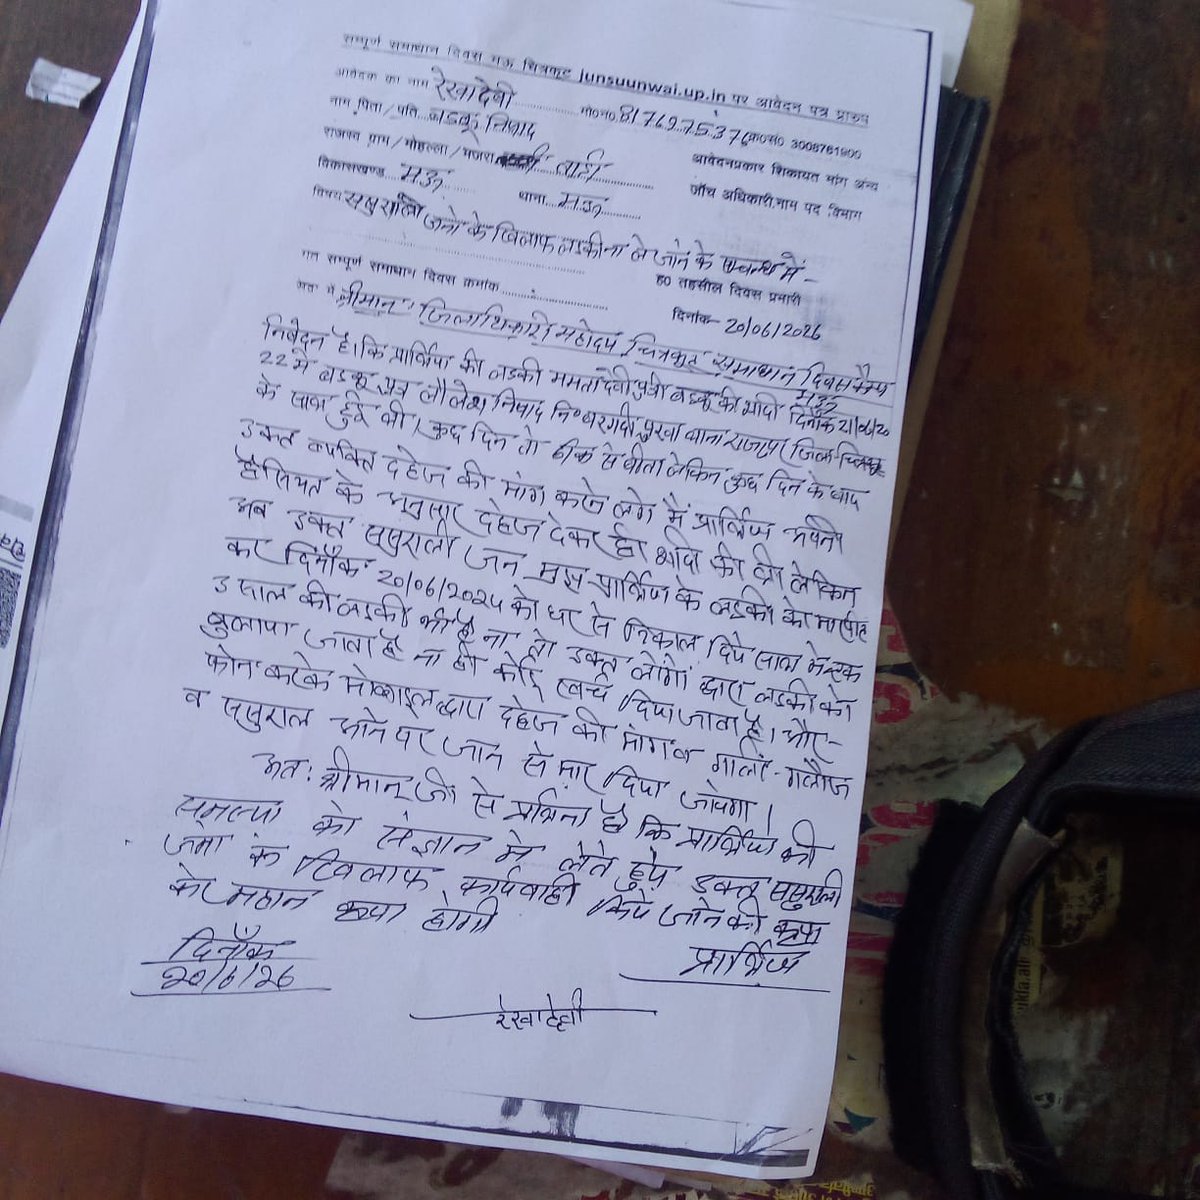 सम्पूर्ण समाधान दिवस मऊ चित्रकूट junsuunwai.up.in पर आवेदन पत्र प्रारुप
आवेदक का नाम रेखादेवी मो०न० 8176975376 क्र०सं० 3006761900
नाम पिता / पति लडकू निषाद
आवेदनप्रकार शिकायत मांग अन्य
राजस्व ग्राम / मोहल्ला / मजरा ताड़ी
जाँच अधिकारी.नाम पद विभाग
विकासखण्ड मऊ थाना मऊ
विषय ससुराली जनो के खिलाफ लडकी ना ले जाने के सम्बन्ध में -
गत सम्पूर्ण समाधान दिवस क्रमांक
ह० तहसील दिवस प्रभारी
दिनांक- 20/06/2026
श्रीमान् जिलाधिकारी महोदय चित्रकूट समाधान दिवस कैम्प
मऊ
निवेदन है। कि प्रार्थिया की लडकी ममता देवी पुत्री लडकू की शादी दिनाँक 21/06/20
22 मे लडकू पुत्र लौलेश निषाद नि० बरगदी पुरवा थाना राजापुर जिला-चित्रकूट
के साथ हुई थी। कुछ दिन तो ठीक से बीता लेकिन कुछ दिन के बाद
उक्त व्यक्ति दहेज की मांग करने लगे मैं प्रार्थिया अपनी
हैसियत के अनुसार दहेज देकर ही शादी की थी लेकिन
अब उक्त ससुराली जन मुझ प्रार्थिया के लडकी को मारपीट
कर दिनाँक 20/06/2024 को घर से निकाल दिये साथ मे एक
3 साल की लडकी भी है ना तो उक्त लोगों द्वारा लडकी को
बुलाया जाता है ना ही कोई खर्च दिया जाता है। और-
फोन करके मोबाइल द्वारा दहेज की मांग व गाली-गलौज
व ससुराल आने पर जान से मार दिया जायेगा।
अत: श्रीमान् जी से प्रार्थना है कि प्रार्थिया की
समस्या को संज्ञान मे लेते हुये उक्त ससुराली
जनो के खिलाफ कार्यवाही किये जाने की कृपा
करे महान कृपा होगी
दिनाँक
20/6/26
प्रार्थिया
रेखादेवी